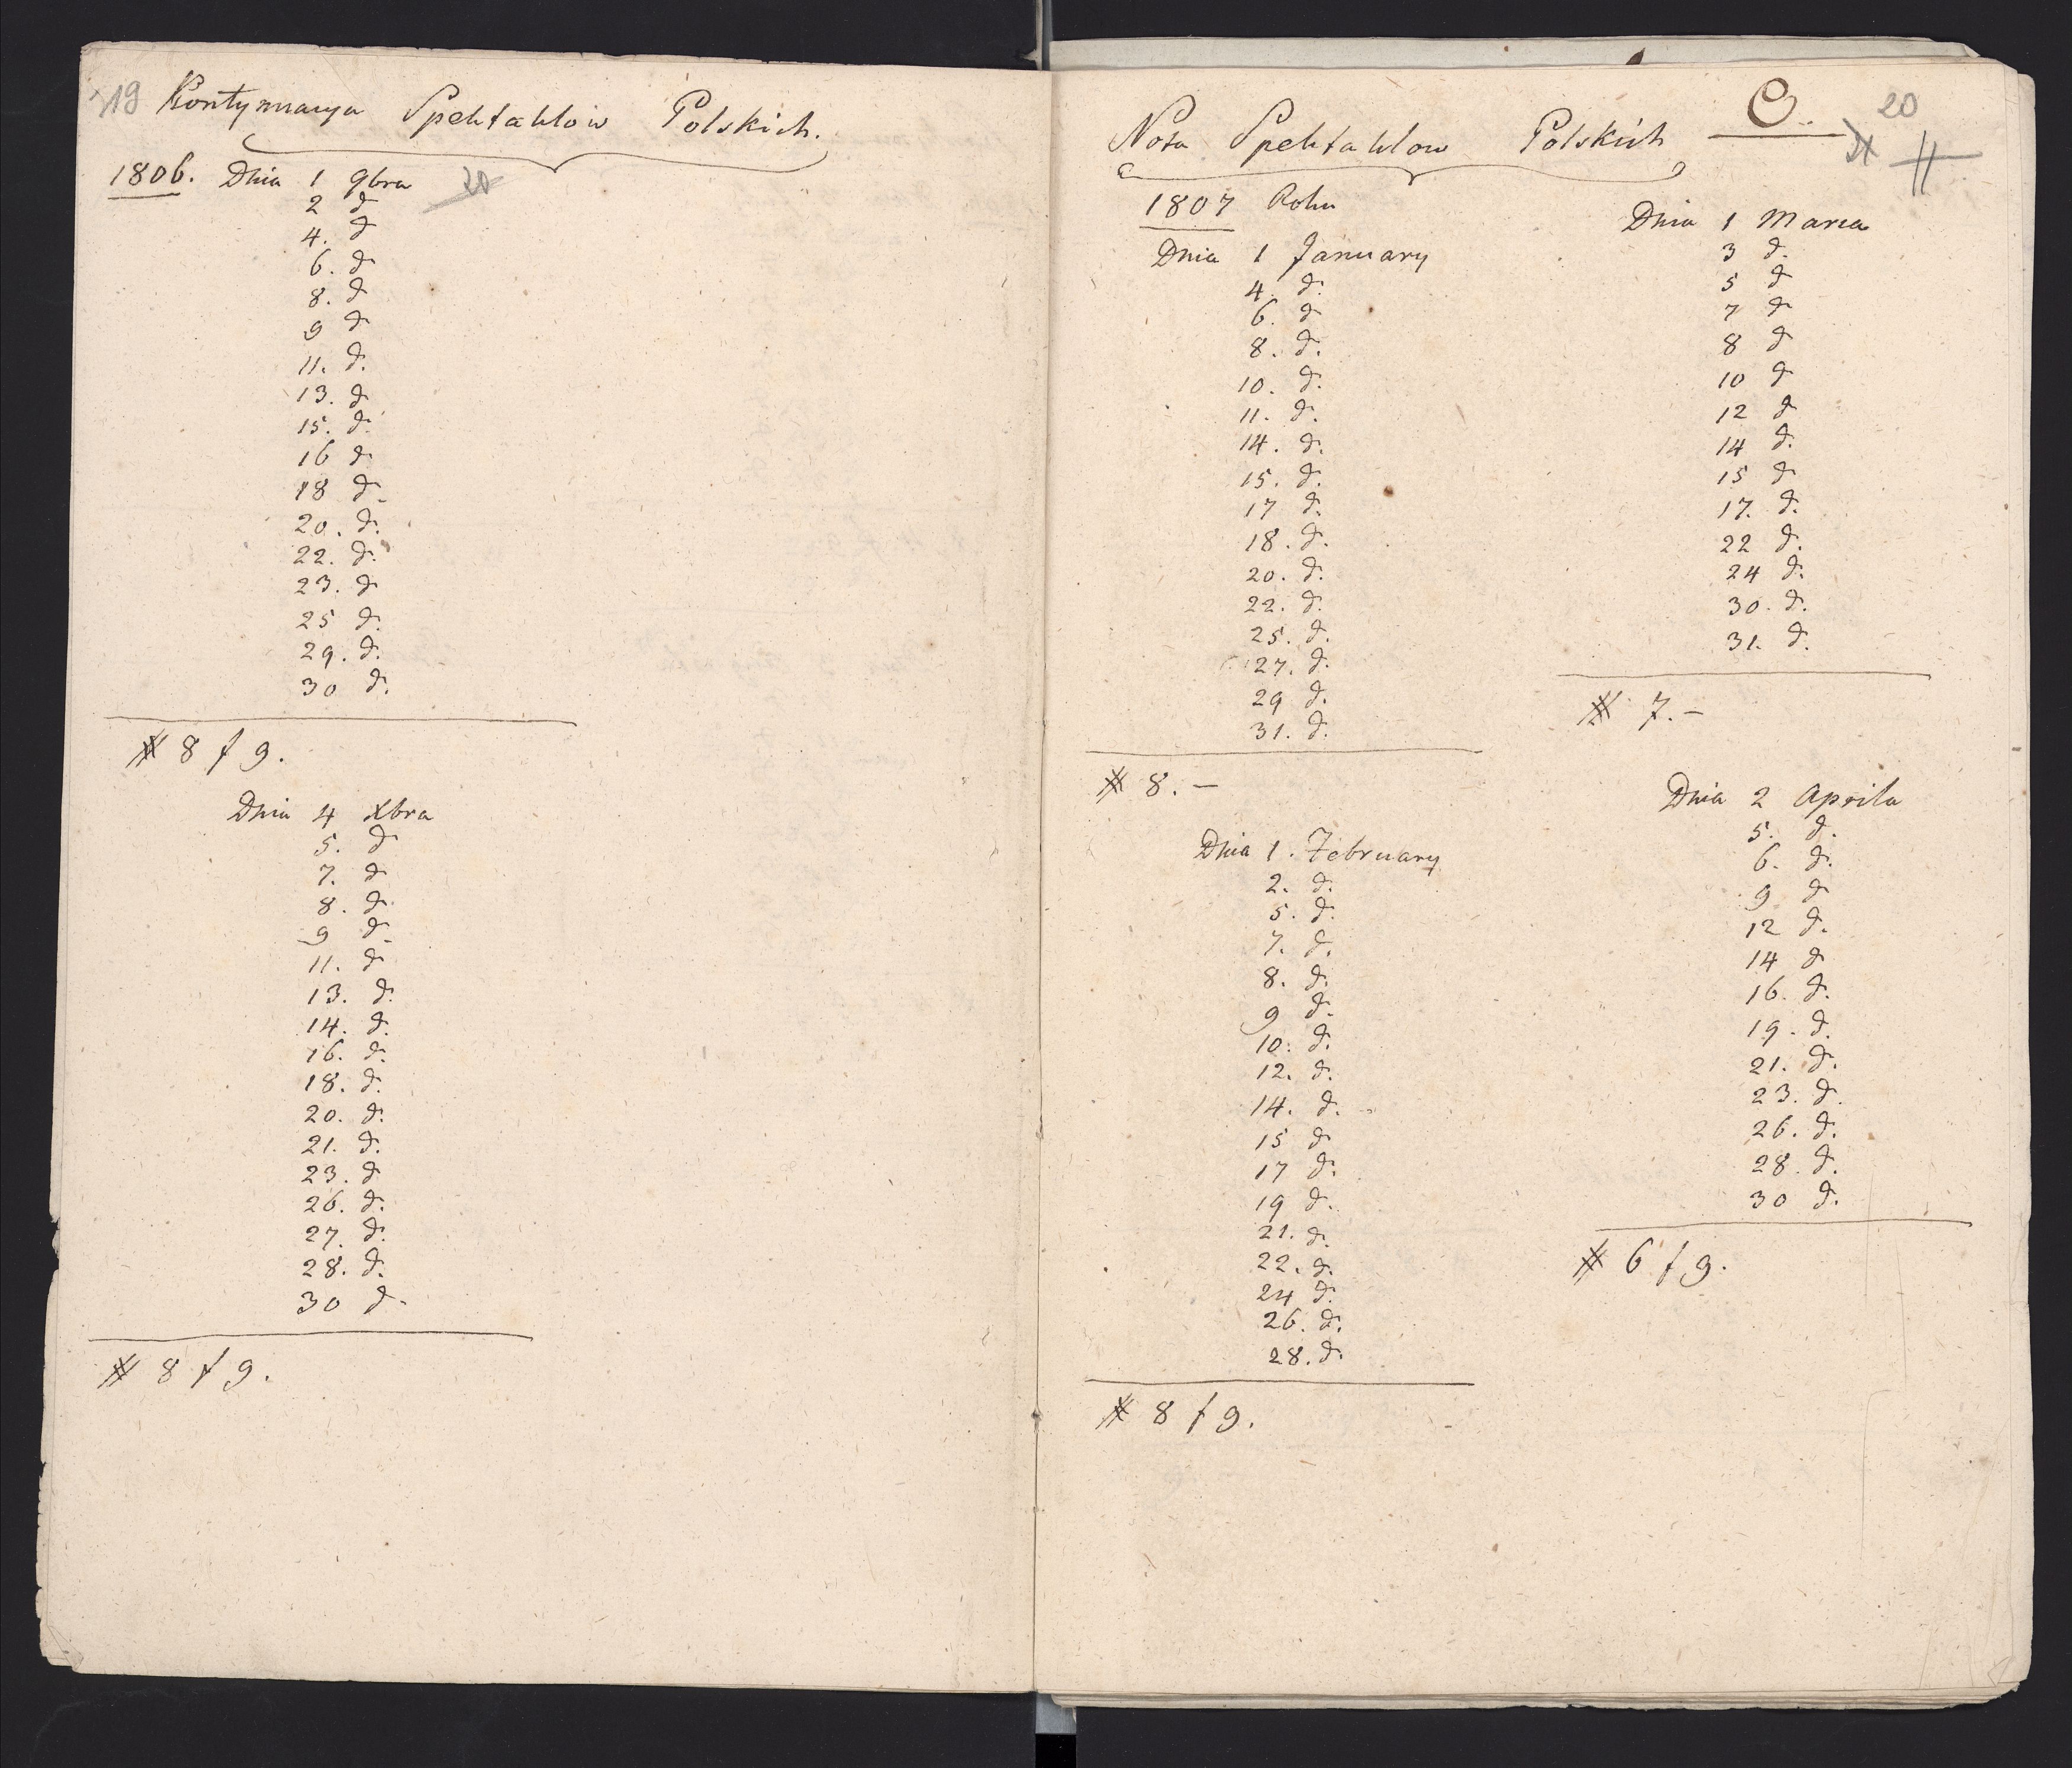 19 Kontynuacya Spektaklów Polskich.
1806. Dnia 1 9bra 20
2 d
4. d
6. d
8. d
9 d
11. d.
13. d
15. d.
16 d.
18 d.
20. d.
22. d.
23. d
25 d.
29. d.
30 d.
# 8 f 9.
Dnia 4 Xbra
5. d
7. d
8. d.
9 d.
11. d.
13. d.
14. d.
16. d.
18. d.
20. d.
21. d.
23. d
26. d.
27. d.
28. d.
30 d.
# 8 f 9.
C. 20
Nota Spektaklow Polskich
1807 Roku
Dnia 1 January
4. d.
6. d
8. d.
10. d.
11. d.
14. d.
15. d.
17 d.
18. d.
20. d.
22. d.
25. d.
27. d.
29 d.
31. d.
# 8. –
Dnia 1. February
2. d.
5. d.
7. d.
8. d.
9 d.
10. d.
12. d.
14. d.
15 d
17 d.
19 d.
21. d.
22. d.
24 d.
26. d.
28. d.
# 8 f 9.
Dnia 1 Marca
3 d.
5 d
7 d
8 d
10 d
12 d
14 d.
15 d
17. d.
22 d.
24 d.
30. d.
31. d.
# 7. –
Dnia 2 Aprila
5. d.
6. d.
9 d
12 d.
14 d
16. d.
19. d.
21. d.
23. d.
26. d.
28. d.
30 d.
# 6 f 9.